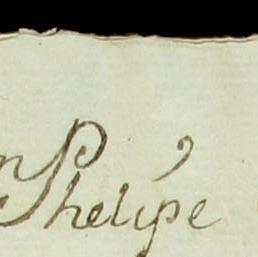 n Phelipe